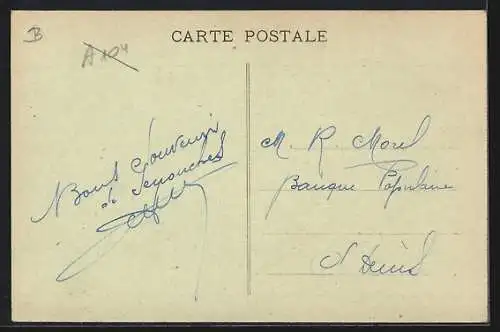 B
A104
CARTE POSTALE
Bons Souvenirs
de Senonches
M. R. Morel
Banque Populaire
St Denis